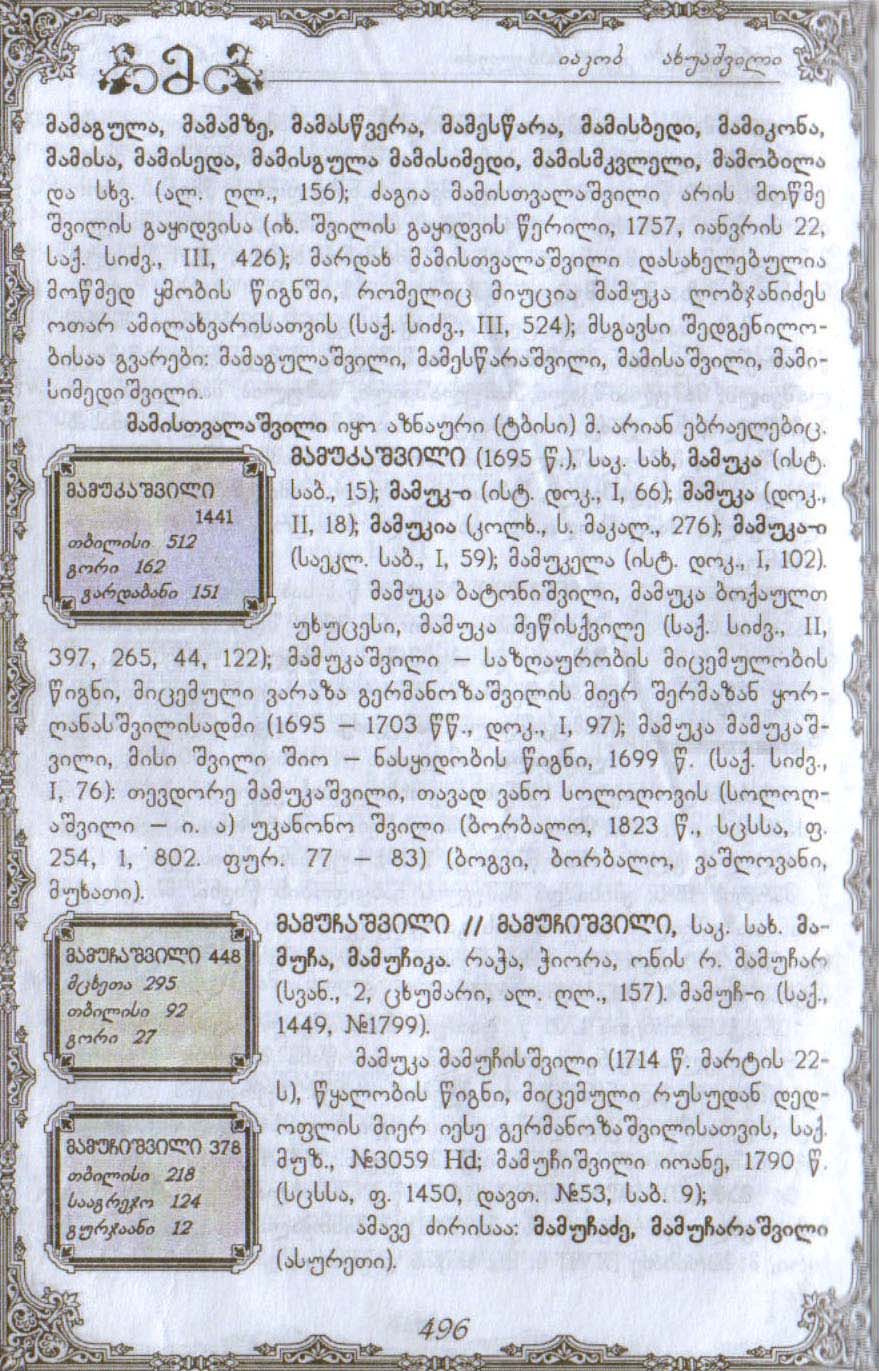 მ
იაკობ ახუაშვილი
მამაგულა, მამამზე, მამასწვერა, მამესწარა, მამისბედი, მამიკონა,
მამისა, მამისედა, მამისგულა მამისიმედი, მამისმკვლელი, მამობილა
და სხვ. (ალ. ღლ., 156); ძაგია მამისთვალაშვილი არის მოწმე
შვილის გაყიდვისა (იხ. შვილის გაყიდვის წერილი, 1757, იანვრის 22,
საქ. სიძვ., III, 426); მარდახ მამისთვალაშვილი დასახელებულია
მოწმედ ყმობის წიგნში, რომელიც მიუცია მამუკა ლობჯანიძეს
ოთარ ამილახვარისათვის (საქ. სიძვ., III, 524); მსგავსი შედგენილო-
ბისაა გვარები: მამაგულაშვილი, მამესწარაშვილი, მამისაშვილი, მამი-
სიმედიშვილი.
მამისთვალაშვილი იყო აზნაური (ტბისი) მ. არიან ებრაელებიც.
მამუკაშვილი
1441
თბილისი 512
გორი 162
გარდაბანი 151
მამუკაშვილი (1695 წ.), საკ. სახ, მამუკა (ისტ.
საბ., 15); მამუკ-ი (ისტ. დოკ., I, 66); მამუკა (დოკ.,
II, 18); მამუკია (კოლხ., ს. მაკალ., 276); მამუკა-ი
(საეკლ. საბ., I, 59); მამუკელა (ისტ. დოკ., I, 102).
მამუკა ბატონიშვილი, მამუკა ბოქაულთ
უხუცესი, მამუკა მეწისქვილე (საქ. სიძვ., II,
397, 265, 44, 122); მამუკაშვილი – საზღაურობის მიცემულობის
წიგნი, მიცემული ვარაზა გერმანოზაშვილის მიერ შერმაზან ყორ-
ღანასშვილისადმი (1695 – 1703 წწ., დოკ., I, 97); მამუკა მამუკაშ-
ვილი, მისი შვილი შიო – ნასყიდობის წიგნი, 1699 წ. (საქ. სიძვ.,
I, 76): თევდორე მამუკაშვილი, თავად ვანო სოლოღოვის (სოლოღ-
აშვილი – ი. ა) უკანონო შვილი (ბორბალო, 1823 წ., სცსსა, ფ.
254, 1, 802. ფურ. 77 – 83) (ბოგვი, ბორბალო, ვაშლოვანი,
მუხათი).
მამუჩაშვილი 448
მცხეთა 295
თბილისი 92
გორი 27
მამუჩაშვილი // მამუჩიშვილი, საკ. სახ. მა-
მუჩა, მამუჩიკა. რაჭა, ჭიორა, ონის რ. მამუჩარ
(სვან., 2, ცხუმარი, ალ. ღლ., 157). მამუჩ-ი (საქ.,
1449, №1799).
მამუკა მამუჩისშვილი (1714 წ. მარტის 22-
ს), წყალობის წიგნი, მიცემული რუსუდან დედ-
ოფლის მიერ იესე გერმანოზაშვილისათვის, საქ.
მუზ., №3059 Hd; მამუჩიშვილი იოანე, 1790 წ.
(სცსსა, ფ. 1450, დავთ. №53, საბ. 9);
მამუჩიშვილი 378
თბილისი 218
სააგრეჯო 124
გურჯაანი 12
ამავე ძირისაა: მამუჩაძე, მამუჩარაშვილი
(ასურეთი).
496